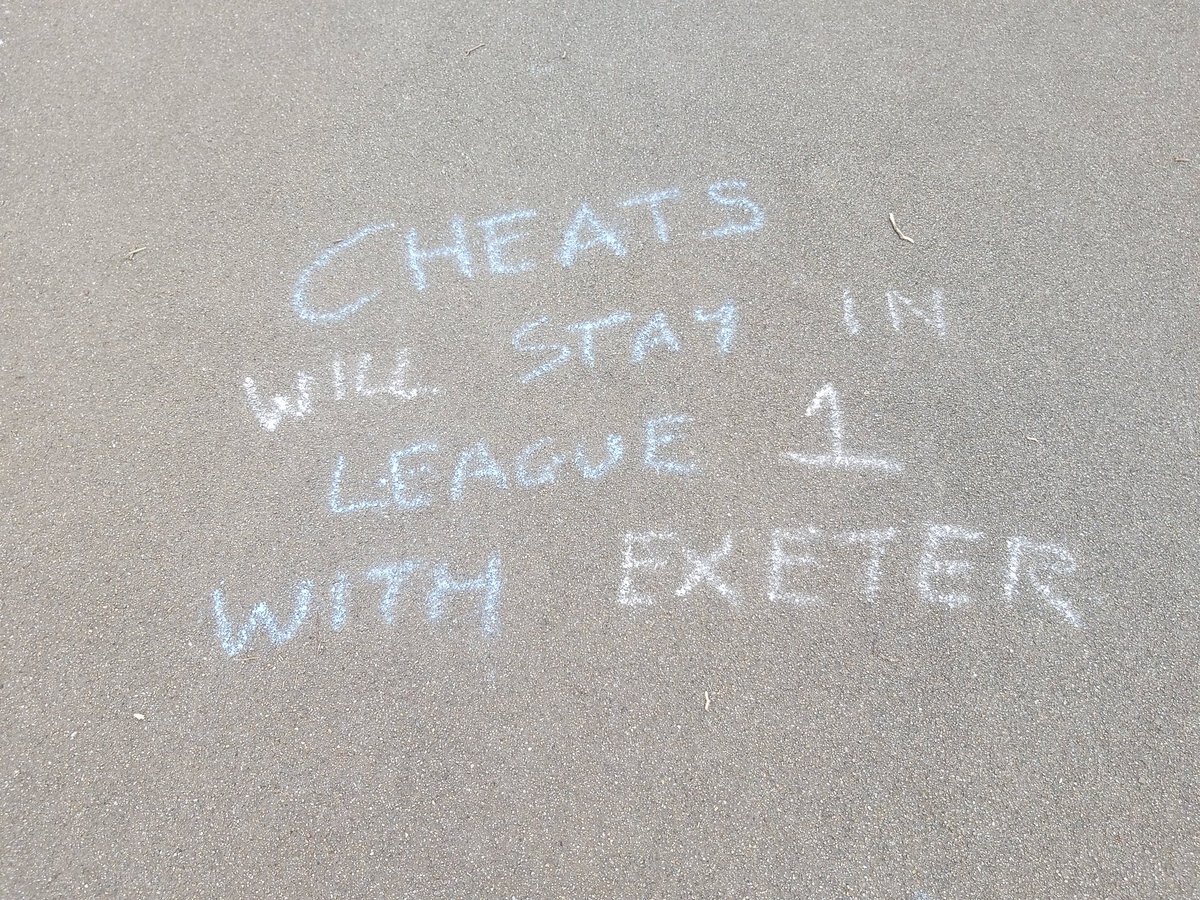 CHEATS
WILL STAY IN
LEAGUE 1
WITH EXETER